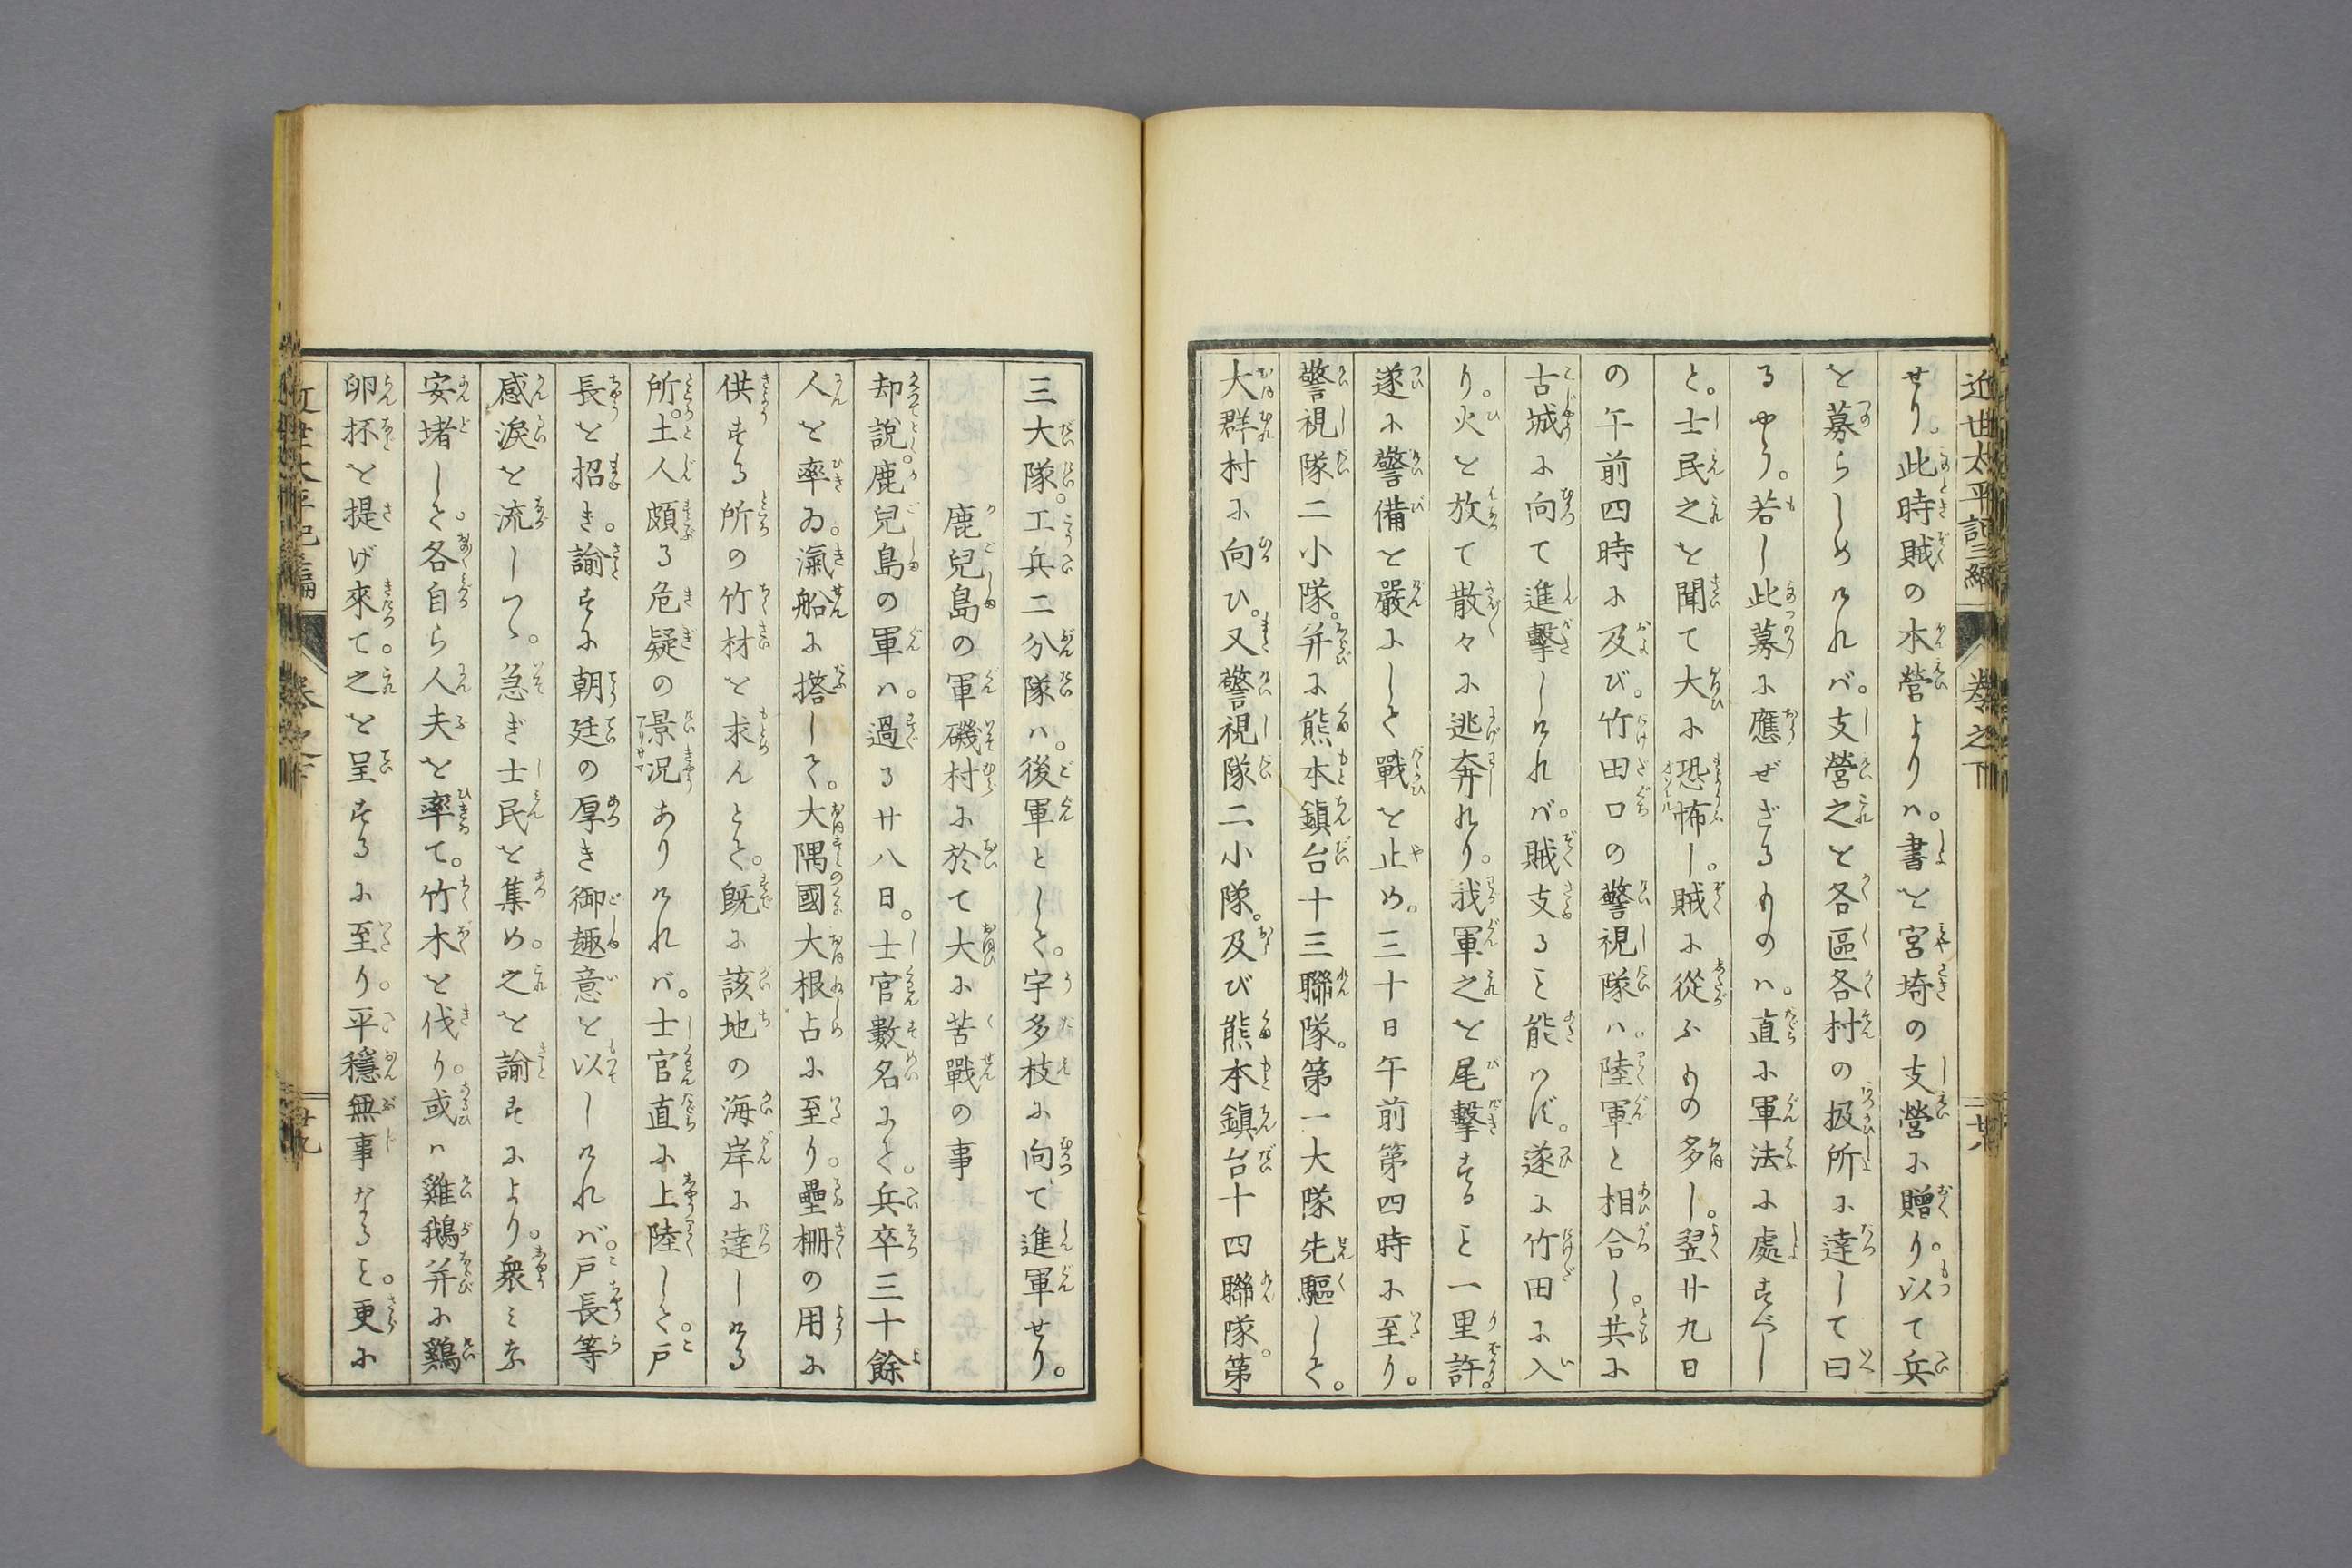 近世太平記三編 卷之下 廿八
せり。此時賊の本營よりハ。書を宮埼の支營に贈り。以て兵
を募らしめけれバ。支營之を各區各村の扱所に達して曰
るやう。若し此募に應ぜざるものハ。直に軍法に處すべし
と。士民之を聞て大に恐怖し。賊に從ふもの多し。翌廿九日
の午前四時に及び。竹田口の警視隊ハ。陸軍と相合し。共に
古城に向て進擊しけれバ。賊支ること能はず。遂に竹田に入
り。火を放て散々に逃奔れり。我軍之を尾擊すること一里許。
遂に警備を嚴にして戰を止め。三十日午前第四時に至り。
警視隊二小隊。并に熊本鎮台十三聯隊。第一大隊先驅して。
大群村に向ひ。又警視隊二小隊。及び熊本鎮台十四聯隊。第
三大隊。工兵二分隊ハ。後軍として。宇多枝に向て進軍せり。
鹿兒島の軍磯村に於て大に苦戰の事
却說。鹿兒島の軍ハ。過る廿八日。士官數名にて。兵卒三十餘
人を率ゐ。滊船に搭して。大隅國大根占に至り。壘柵の用に
供する所の竹材を求んとて。既に該地の海岸に達しける
所。土人頗る危疑の景況ありけれバ。士官直に上陸して。戶
長を招き。諭すに朝廷の厚き御趣意を以しけれバ。戶長等
感淚を流しつゝ。急ぎ士民を集め。之を諭すにより。衆ミな
安堵して。各自ら人夫を率て。竹木を伐り。或ハ雞鵝并に鷄
卵抔を提げ來て。之を呈するに至り。平穩無事なること。更に
卷之下 廿九